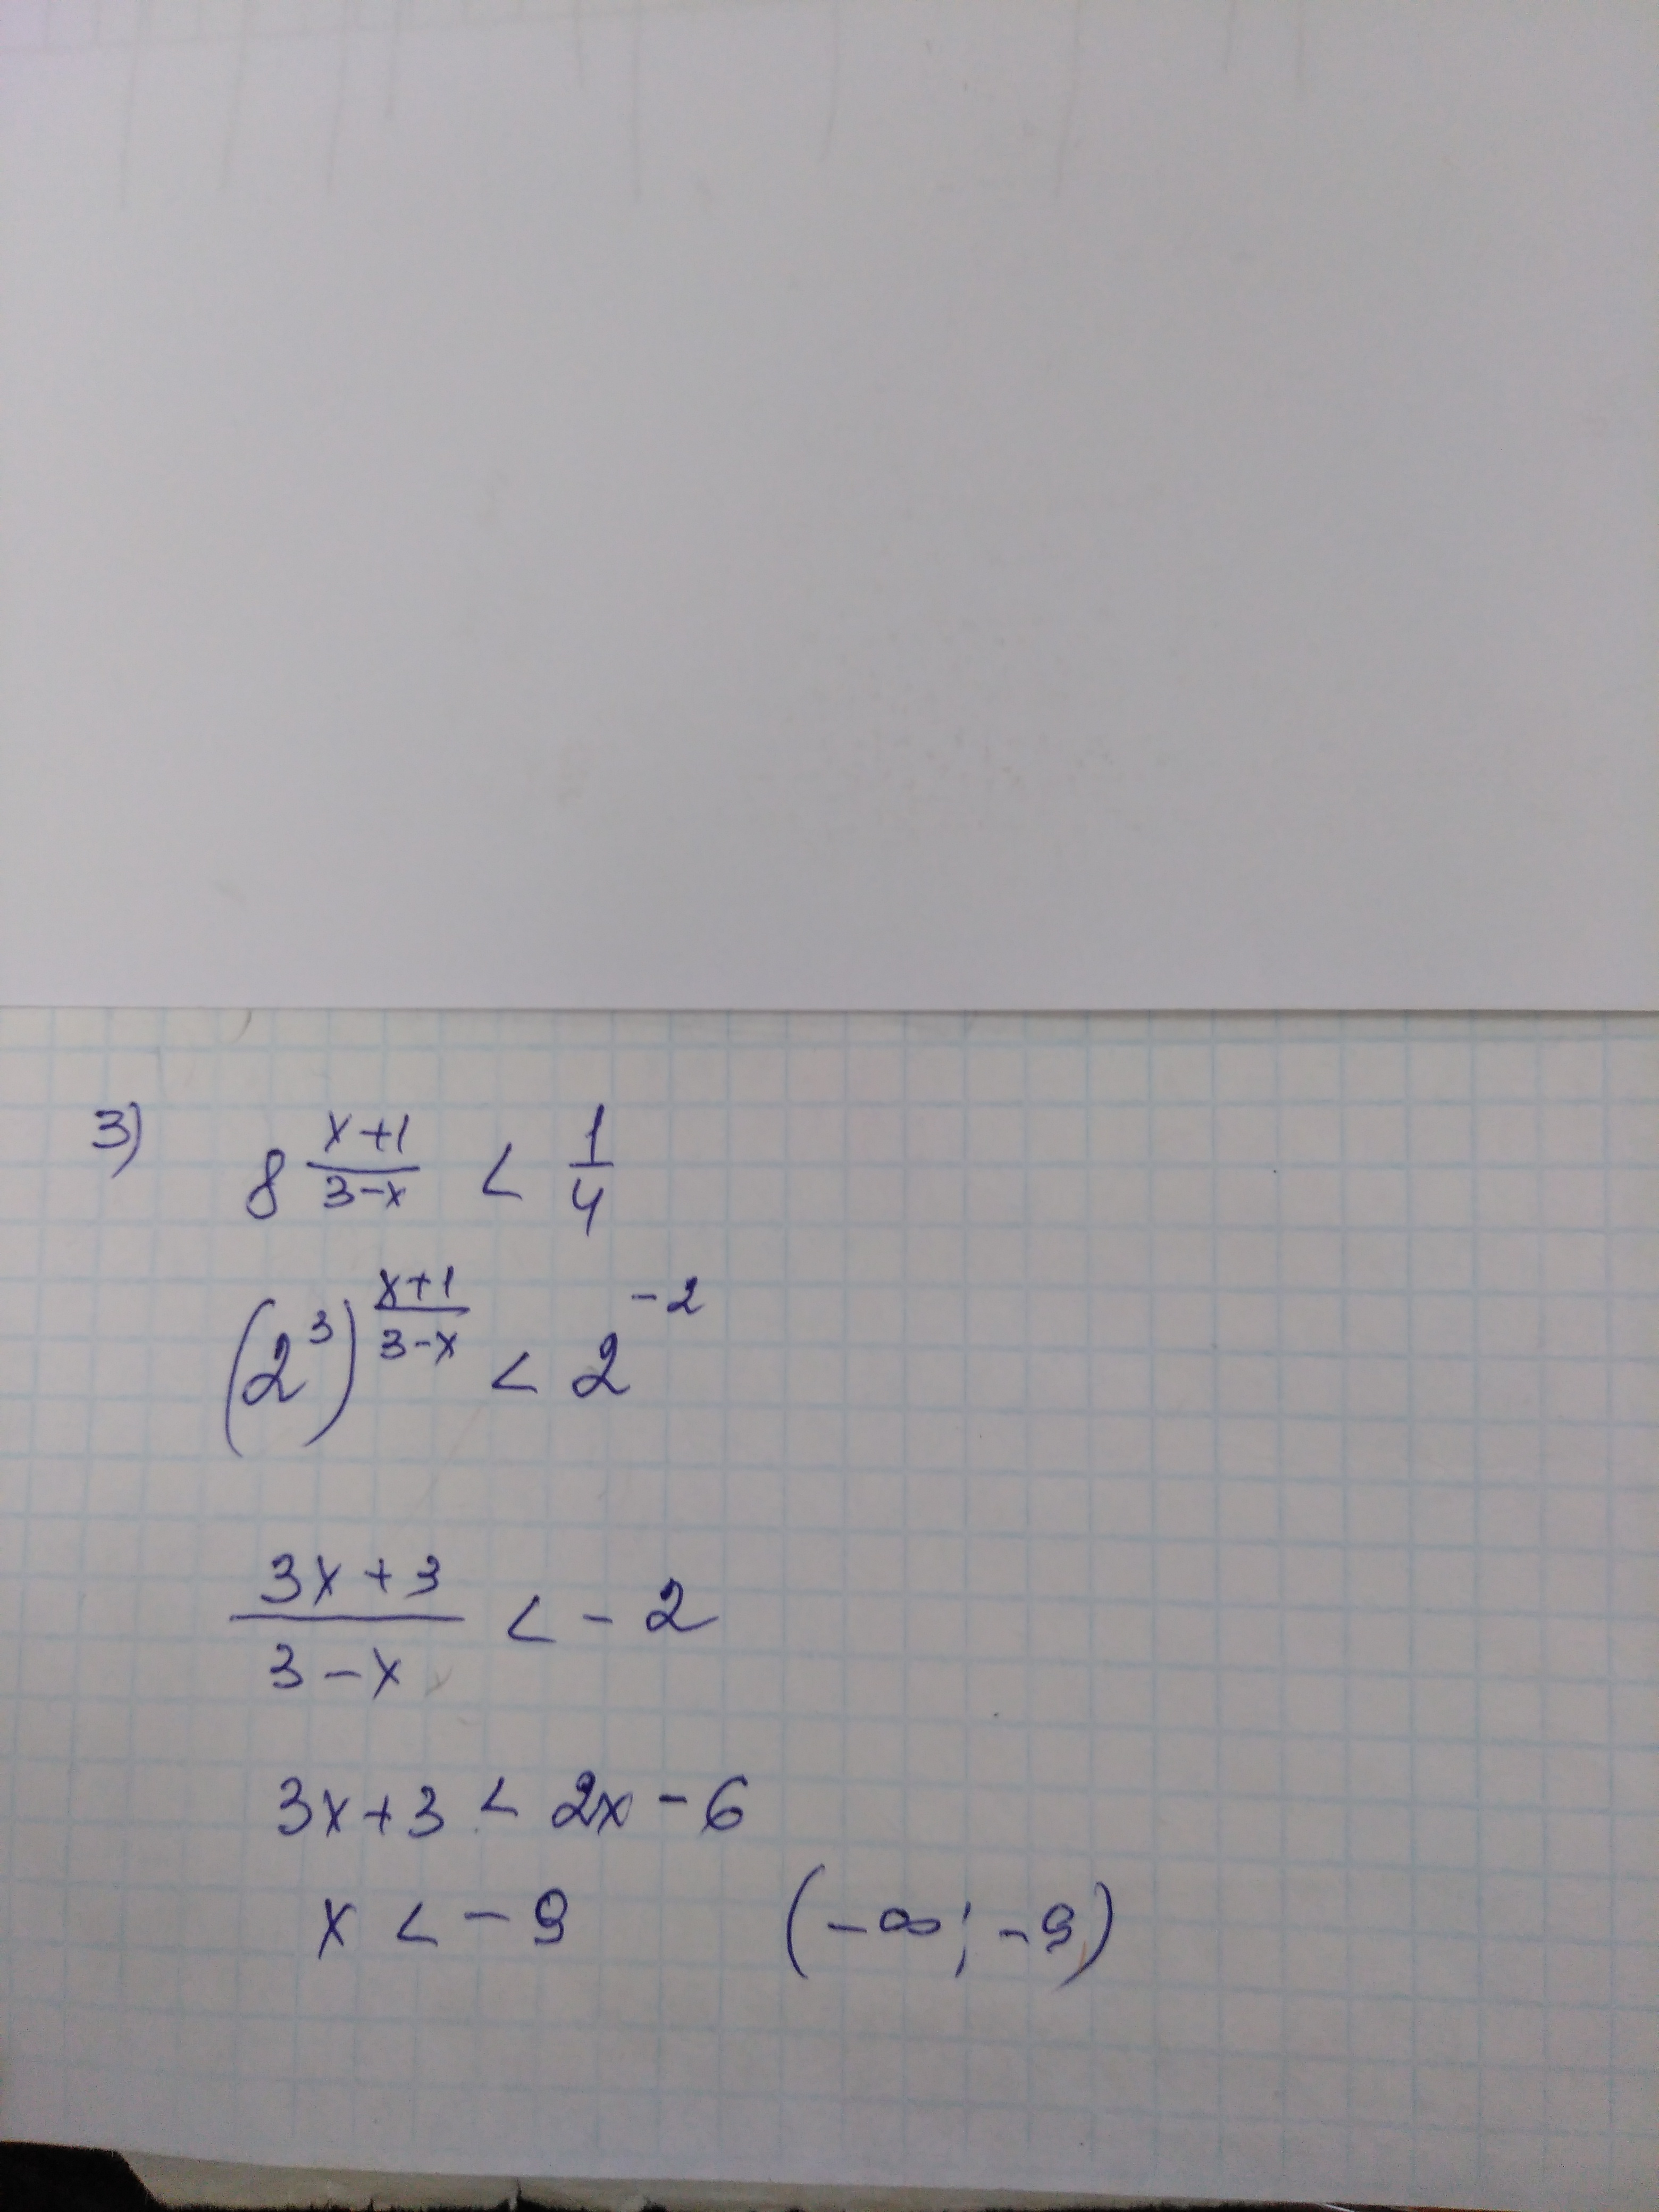 3) 8^((x+1)/(3-x)) < 1/4
(2^3)^((x+1)/(3-x)) < 2^(-2)
(3x+3)/(3-x) < -2
3x+3 < 2x-6
x < -9 (-∞; -9)